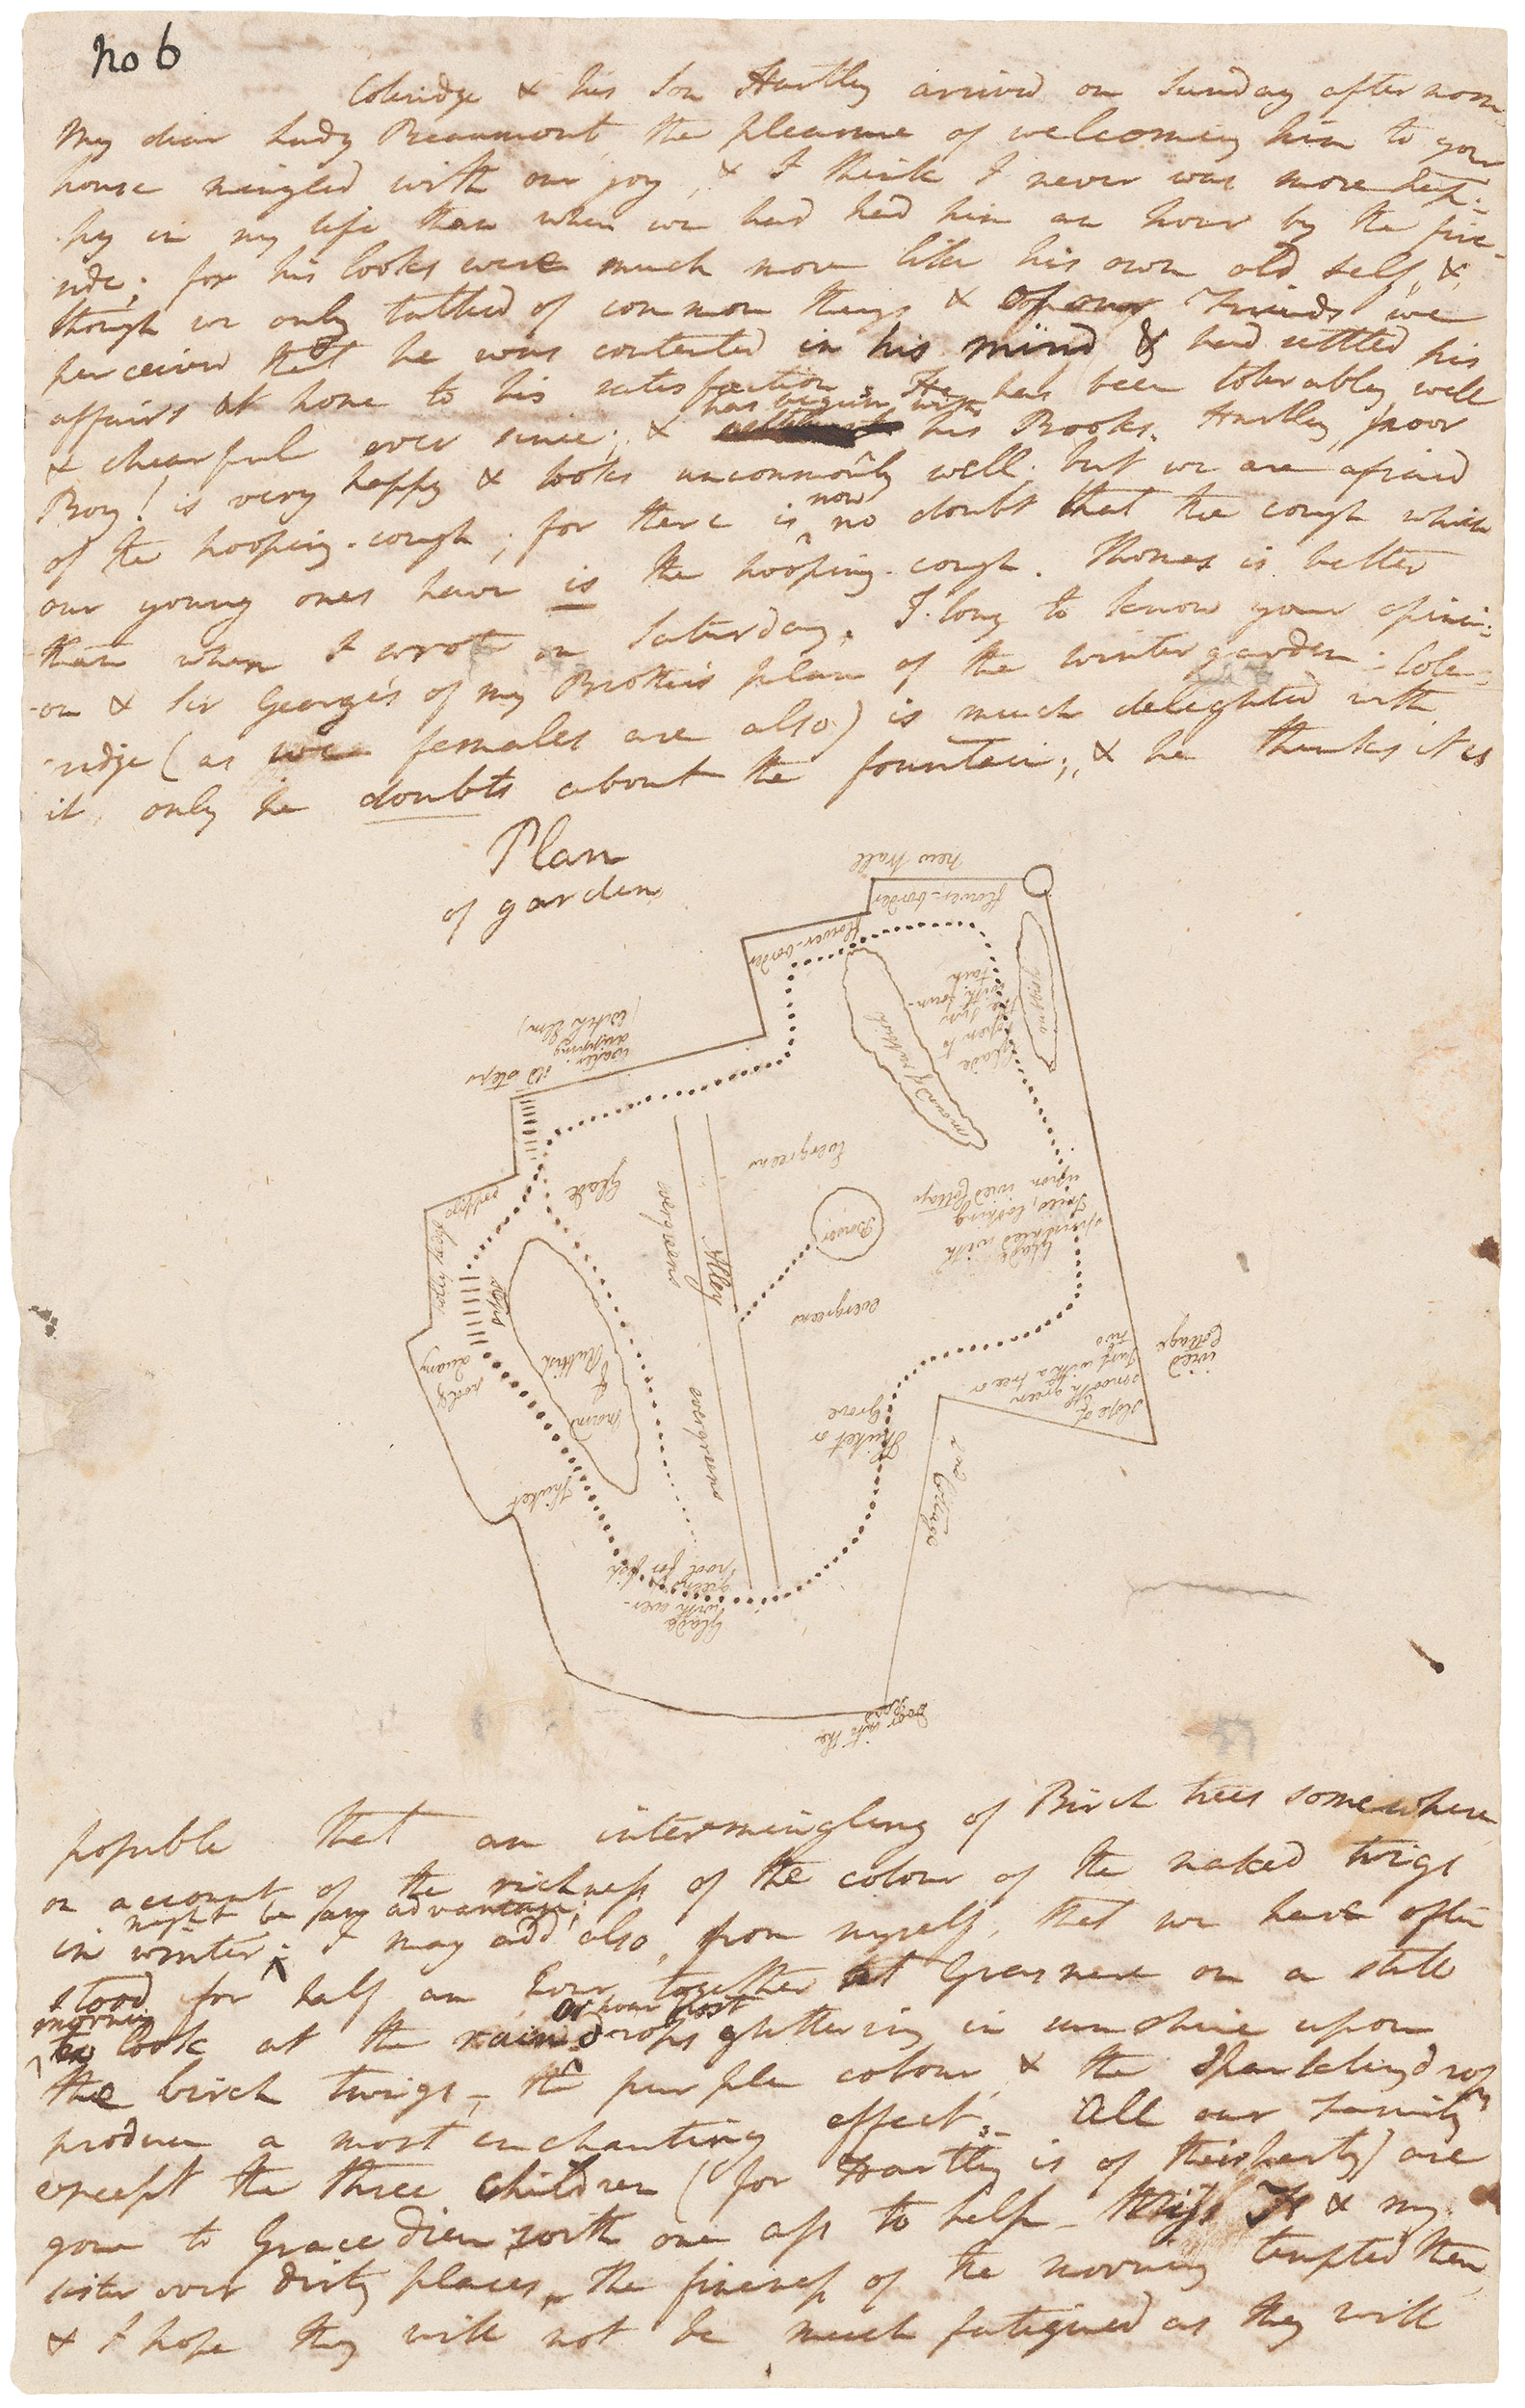 no 6
Coleridge & his Son Hartley arrived on Sunday afternoon,
My dear Lady Beaumont, the pleasure of welcoming him to your
house mingled with our joy, & I think I never was more hap-
py in my life than when we had had him an hour by the fire-
side: for his looks were much more like his own old self, &,
though we only talked of common things & of our Friends we
perceived that he was contented in his mind & had settled his
affairs at home to his satisfaction. He has been tolerably well
& chearful ever since; & has begun with his Books. Hartley, poor
Boy! is very happy & looks uncommonly well. but we are afraid
of the hooping-cough; for there is now no doubt that the cough which
our young ones have is the hooping-cough. Thomas is better
than when I wrote on Saturday. I long to know your opini-
-on & Sir George's of my Brother's plan of the winter garden. Cole-
-ridge (as we females are also) is much delighted with
it, only he doubts about the fountain; & he thinks it is
Plan
of garden
new Wall
flower-border
flower-border
cypress
Glade
open to
the Sun
with foun-
tain
mound of rubbish
water
dripping
(Witch Elm)
old steps
Evergreens
Glade
Bower
evergreens
Alley
Glade
sprinkled with
Trees, looking
upon ivied Cottage
evergreens
steps
mound
of
Rubbish
ivied
Cottage
slope of
smooth green
Turf with a tree or
two
Thicket or
Grove
evergreens
2nd Cottage
Thicket
Glade
with ever-
greens
pool for fish
Door into the
possible that an intermingling of Birch trees somewhere,
on account of the richness of the colour of the naked twigs
in winter, might be an advantage; I may add also, from myself, that we have often
stood for half an hour together at Grasmere on a still
morning to look at the rain-drops or hoar frost glittering in sunshine upon
the birch twigs – the purple colour & the sparkling drops
produce a most enchanting effect. – All our family
except the three children (for Hartley is of their party) are
gone to Grace dieu, with one ass to help Miss H & my
sister over dirty places, the fineness of the morning tempted them,
& I hope they will not be much fatigued as they will